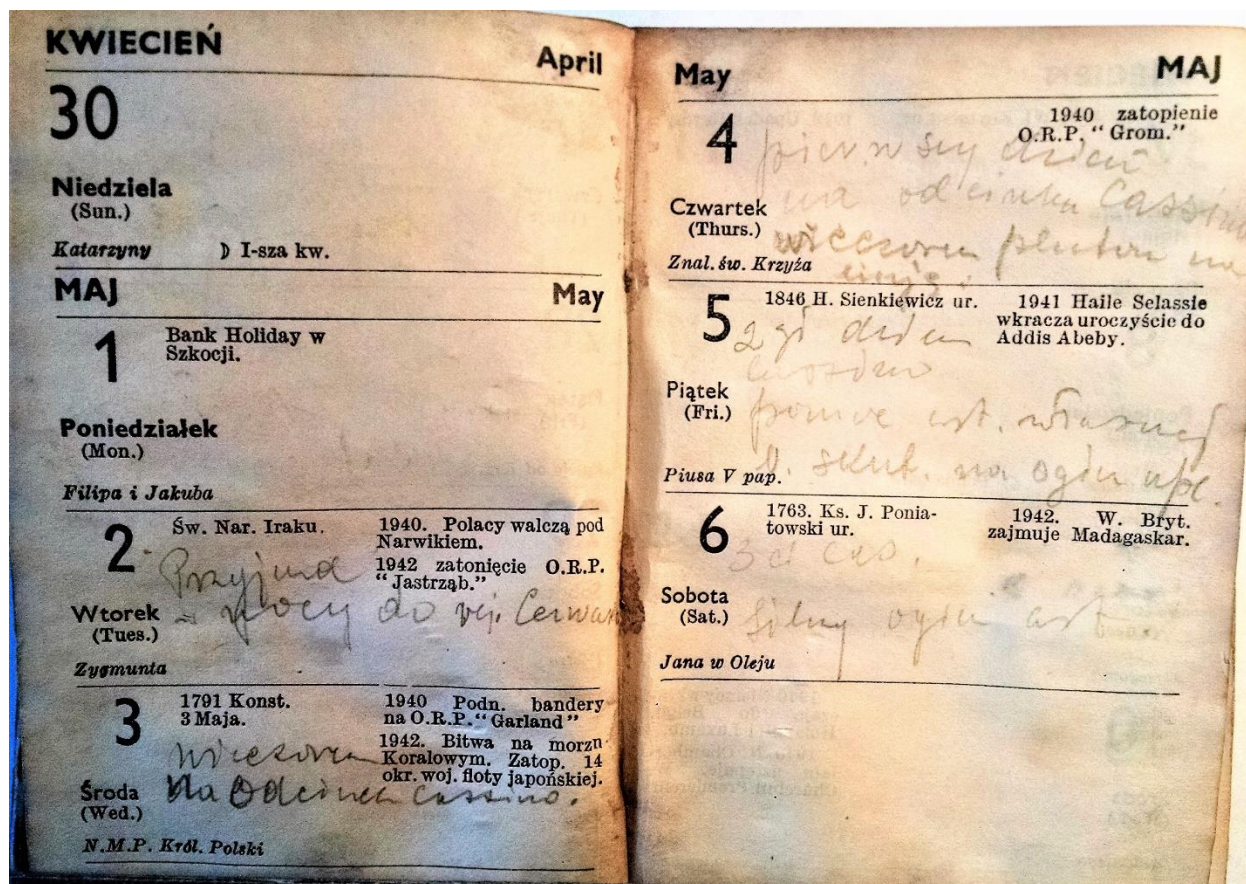 KWIECIEŃ
April
30
Niedziela
(Sun.)
Katarzyny ☽ I-sza kw.
MAJ
May
1
Bank Holiday w
Szkocji.
Poniedziałek
(Mon.)
Filipa i Jakuba
2
Św. Nar. Iraku.
1940. Polacy walczą pod
Narwikiem.
1942 zatonięcie O.R.P.
"Jastrząb."
Przyjazd
w nocy do
Wtorek
(Tues.)
Zygmunta
3
1791 Konst.
3 Maja.
1940 Podn. bandery
na O.R.P. "Garland"
1942. Bitwa na morzn
Koralowym. Zatop. 14
okr. woj. floty japońskiej.
wieczorem
na Odcinek Cassino.
Środa
(Wed.)
N.M.P. Król. Polski
May
MAJ
4
1940 zatopienie
O.R.P. "Grom."
pierwszy dzień
na odcinku Cassino
wieczorem pluton na
Czwartek
(Thurs.)
Znal. św. Krzyża
5
1846 H. Sienkiewicz ur.
1941 Haile Selassie
wkracza uroczyście do
Addis Abeby.
2gi dzień
art. własnej
b. skut. na ogień npl.
Piątek
(Fri.)
Piusa V pap.
6
1763. Ks. J. Ponia-
towski ur.
1942. W. Bryt.
zajmuje Madagaskar.
3 d cas.
silny ogień art
Sobota
(Sat.)
Jana w Oleju